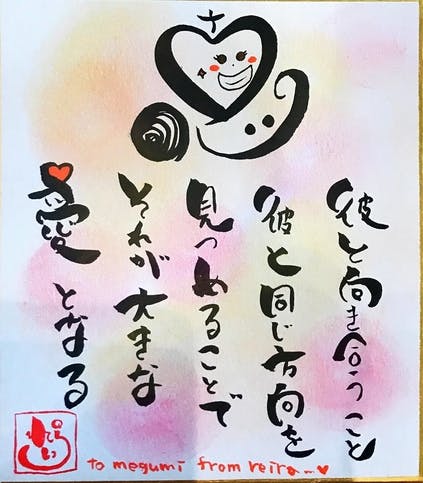 彼と向き合うこと
彼と同じ方向を
見つめることで
それが大きな
愛となる
to megumi from reira...♥